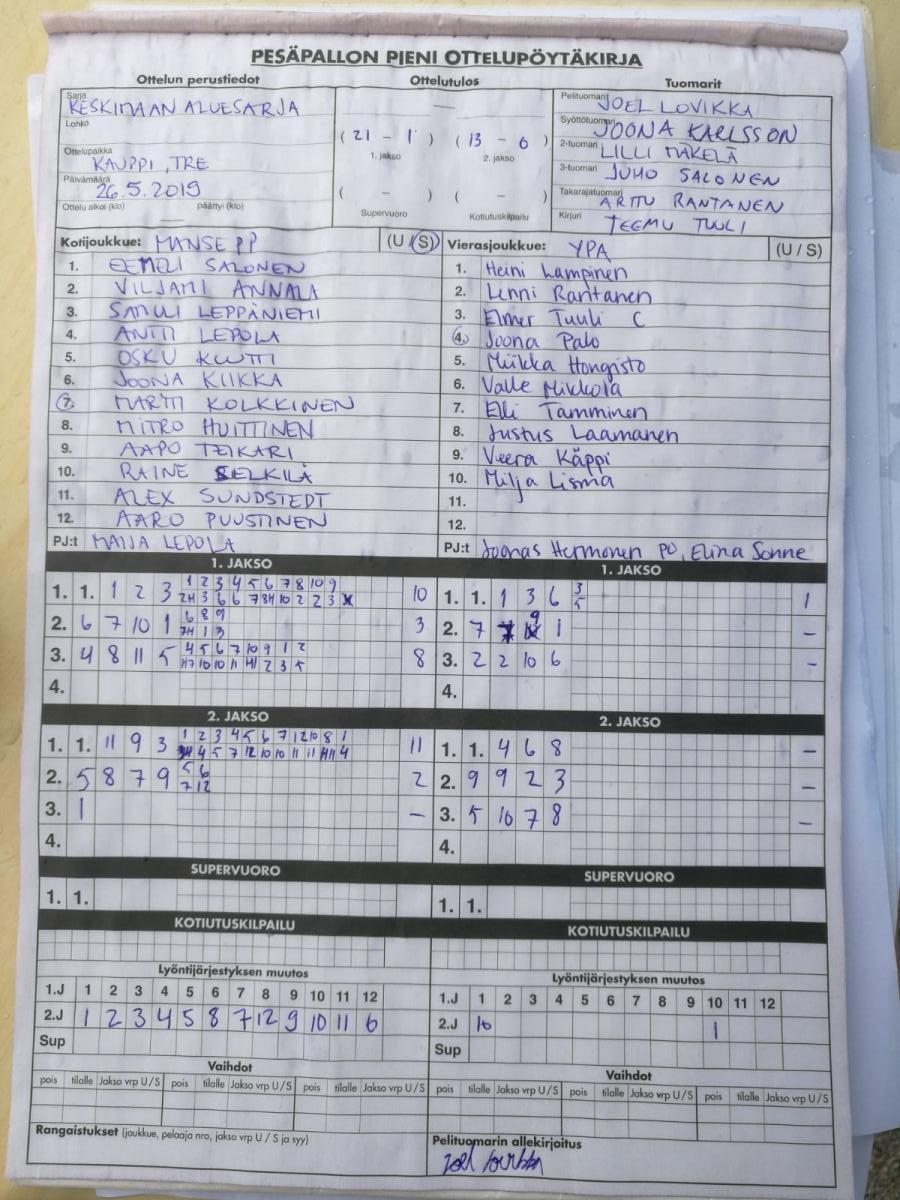 PESÄPALLON PIENI OTTELUPÖYTÄKIRJA
Ottelun perustiedot Ottelutulos Tuomarit
Sarja KESKIMAAN ALUESARJA
Lohko
Ottelupaikka KAUPPI, TRE
Päivämäärä 26.5.2019
Ottelu alkoi (klo) päättyi (klo)
(21 - 1) (13 - 6)
1. jakso 2. jakso
( - ) ( - )
Supervuoro Kotiutuskilpailu
Pelituomari JOEL LOVIKKA
Syöttötuomari JOONA KARLSSON
2-tuomari LILLI MÄKELÄ
3-tuomari JUHO SALONEN
Takarajatuomari ARTTU RANTANEN
Kirjuri TEEMU TUULI
Kotijoukkue: MANSE PP (U / S)
1. EEMELI SALONEN
2. VILJAMI ANNALA
3. SAMULI LEPPÄNIEMI
4. ANTTI LEPOLA
5. OSKU
6. JOONA KIIKKA
7. MARTTI KOLKKINEN
8. MITRO HUITTINEN
9. AAPO TEIKARI
10. RAINE SELKILÄ
11. ALEX SUNDSTEDT
12. AARO PUUSTINEN
PJ:t MAIJA LEPOLA
Vierasjoukkue: YPA (U / S)
1. Heini Lampinen
2. Lenni Rantanen
3. Elmer Tuuli C
4. Joona Palo
5. Miikka Hongisto
6. Valle Mikkola
7. Elli Tamminen
8. Justus Laamanen
9. Veera Käppi
10. Milja Lisma
11.
12.
PJ:t Joonas Hermonen PJ, Elina Sonne
1. JAKSO
1. 1. 1 2 3 1 2 3 4 5 6 7 8 10 9 10
2. 6 7 10 1 6 8 9 3
3. 4 8 11 5 4 5 6 7 10 9 1 2 8
4.
1. JAKSO
1. 1. 1 3 6 3 5 1
2. 7 7 9 1 -
3. 2 2 10 6 -
4.
2. JAKSO
1. 1. 11 9 3 1 2 3 4 5 6 7 12 10 8 1 11
2. 5 8 7 9 5 6 7 12 2
3. 1 -
4.
2. JAKSO
1. 1. 4 6 8 -
2. 9 9 2 3 -
3. 5 10 7 8 -
4.
SUPERVUORO
1. 1.
SUPERVUORO
1. 1.
KOTIUTUSKILPAILU
KOTIUTUSKILPAILU
Lyöntijärjestyksen muutos
1.J 1 2 3 4 5 6 7 8 9 10 11 12
2.J 1 2 3 4 5 8 7 12 9 10 11 6
Sup
Lyöntijärjestyksen muutos
1.J 1 2 3 4 5 6 7 8 9 10 11 12
2.J 10 1
Sup
Vaihdot
pois tilalle Jakso vrp U/S pois tilalle Jakso vrp U/S pois tilalle Jakso vrp U/S
Vaihdot
pois tilalle Jakso vrp U/S pois tilalle Jakso vrp U/S pois tilalle Jakso vrp U/S
Rangaistukset (joukkue, pelaaja nro, jakso vrp U / S ja syy)
Pelituomarin allekirjoitus